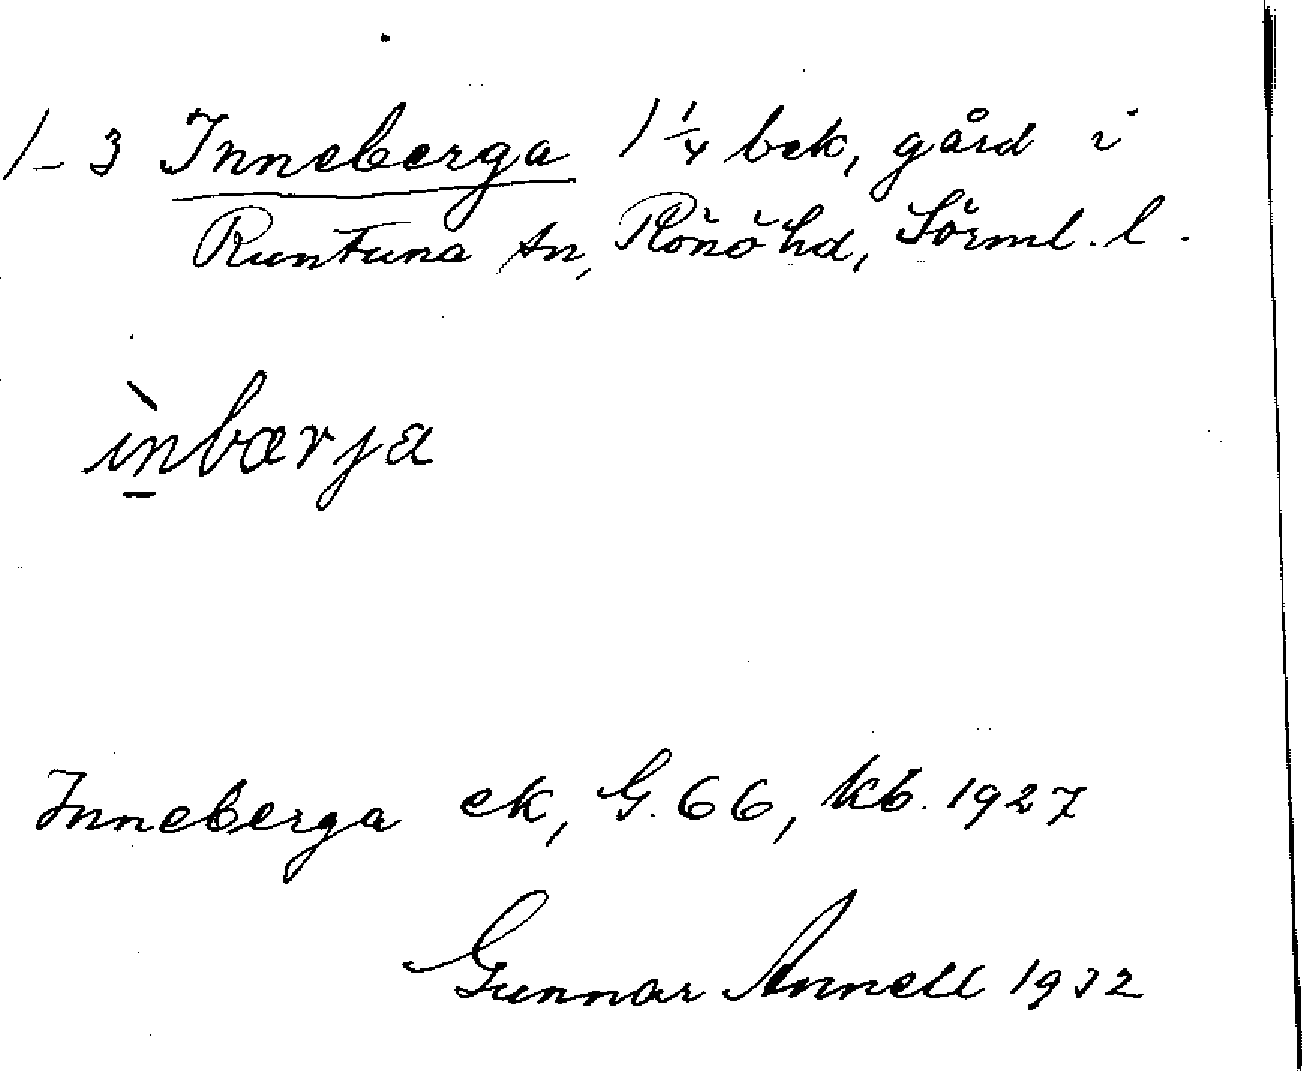 1-3 Inneberga 1 1/4 bek, gård i
Runtuna sn, Rönö hd, Sörml. l.
ìnbærja
Inneberga ek, G. 66, kb. 1927
Gunnar Annell 1932